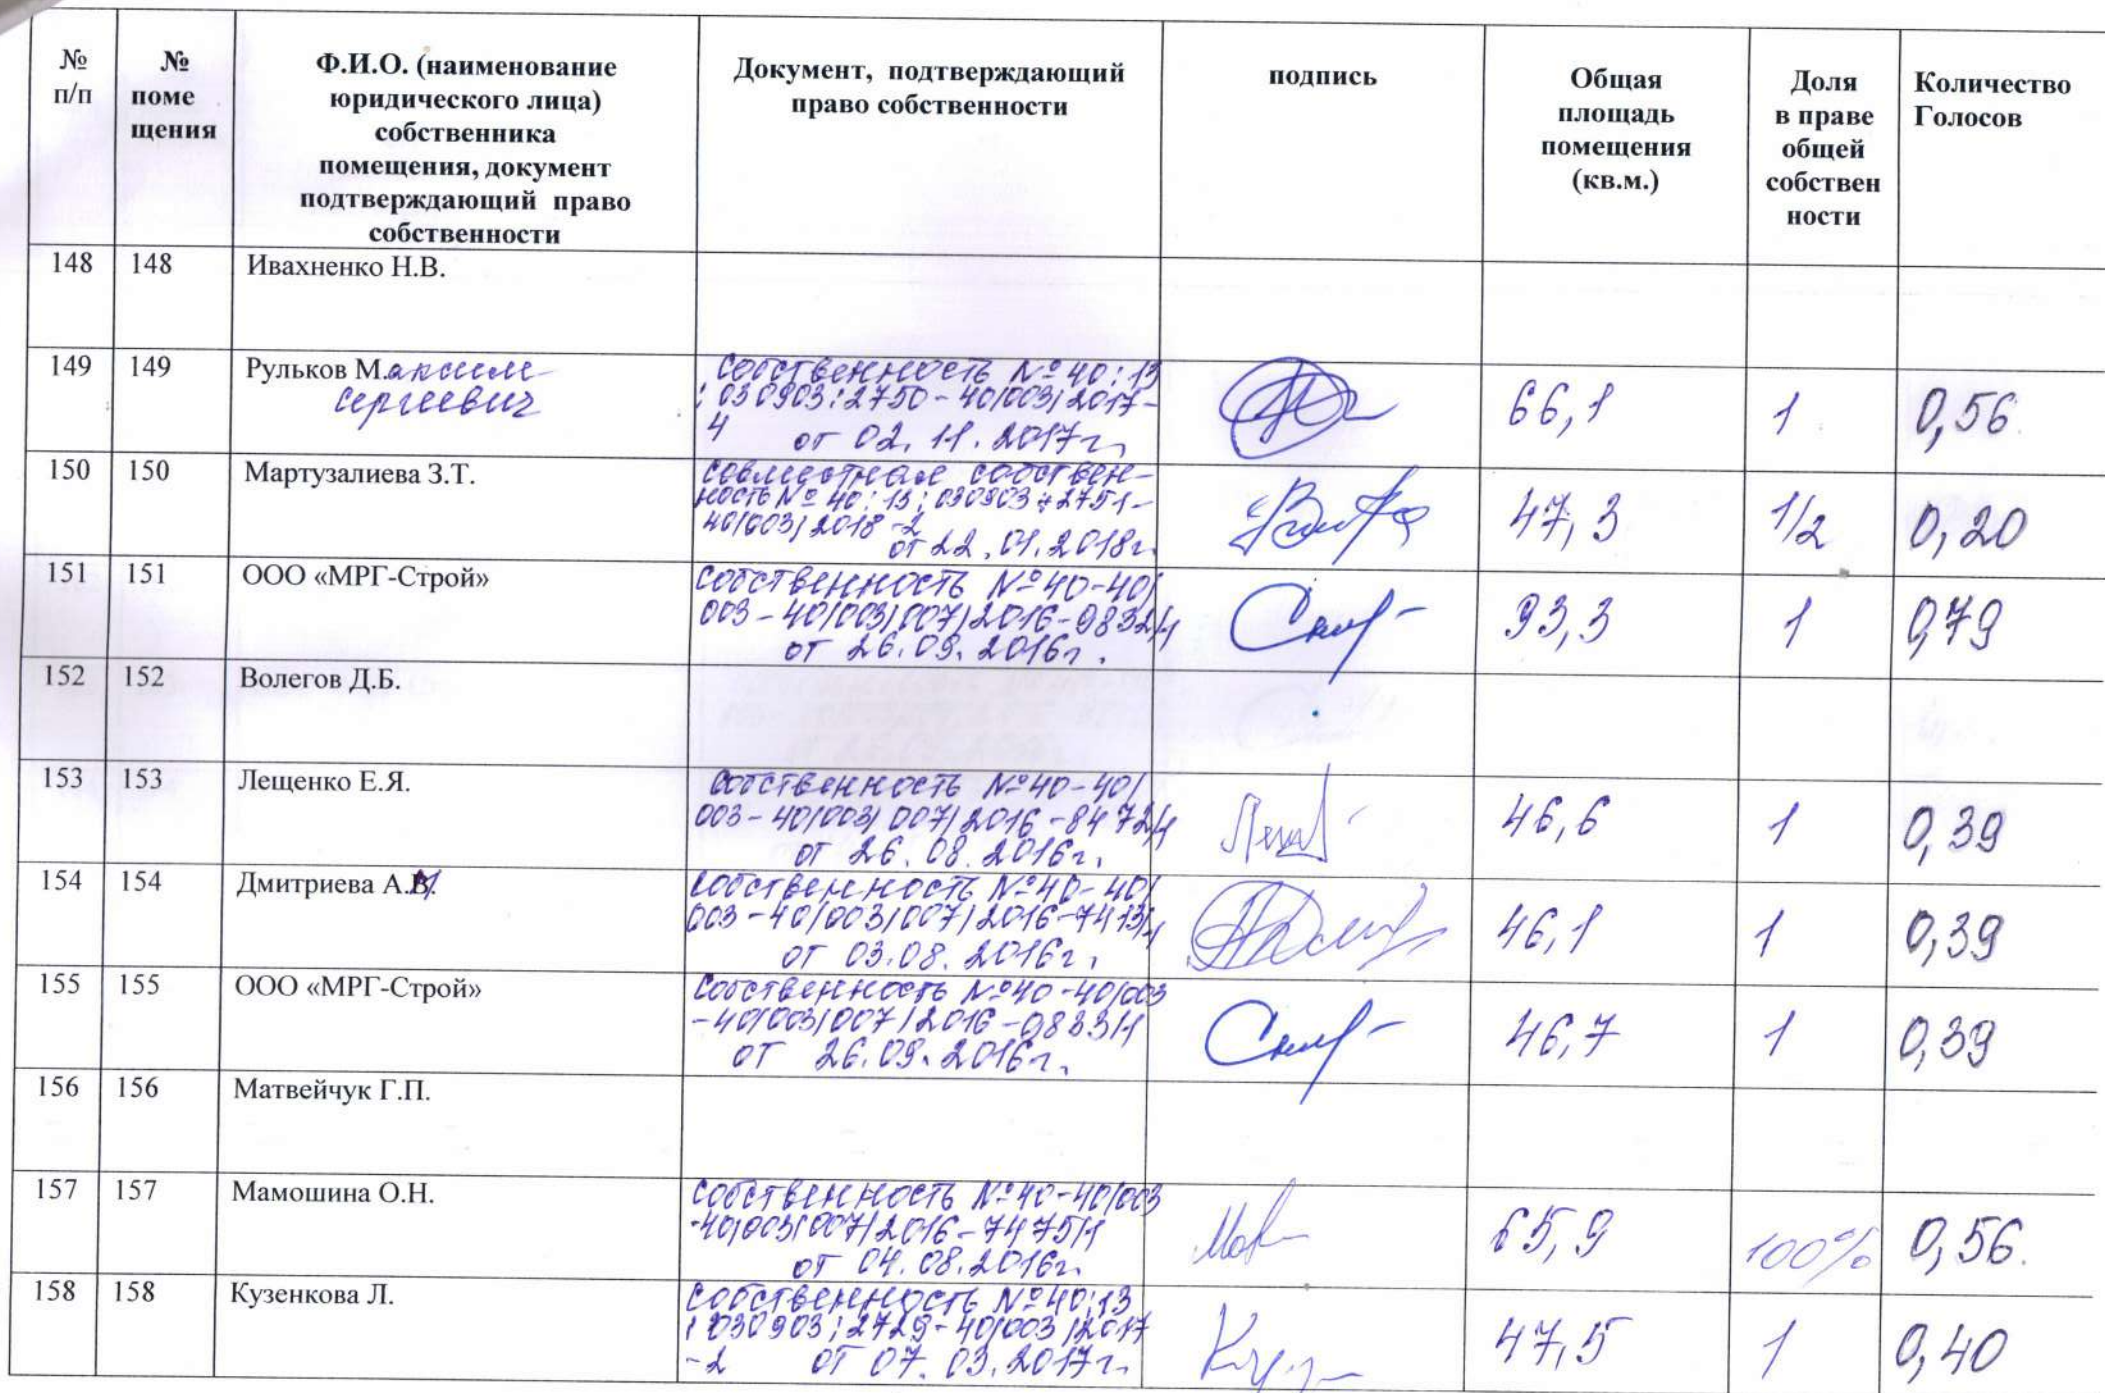 № п/п
№ поме щения
Ф.И.О. (наименование юридического лица) собственника помещения, документ подтверждающий право собственности
Документ, подтверждающий право собственности
подпись
Общая площадь помещения (кв.м.)
Доля в праве общей собствен ности
Количество Голосов
148 148 Ивахненко Н.В.
149 149 Рульков Максим Сергеевич
Собственность № 40:13
:030903:2750-40/003/2017-
4 от 02.11.2017г.
66,1 1 0,56
150 150 Мартузалиева З.Т.
Совместная собствен-
ность № 40:13:030903:2751-
40/003/2018-2
от 22.01.2018г.
47,3 1/2 0,20
151 151 ООО «МРГ-Строй»
Собственность № 40-40/
003-40/003/007/2016-9832/1
от 26.09.2016г.
93,3 1 0,79
152 152 Волегов Д.Б.
153 153 Лещенко Е.Я.
Собственность № 40-40/
003-40/003/007/2016-8472/1
от 26.08.2016г.
46,6 1 0,39
154 154 Дмитриева А.
Собственность № 40-40/
003-40/003/007/2016-7413/1
от 03.08.2016г.
46,1 1 0,39
155 155 ООО «МРГ-Строй»
Собственность № 40-40/003
-40/003/007/2016-9833/1
от 26.09.2016г.
46,7 1 0,39
156 156 Матвейчук Г.П.
157 157 Мамошина О.Н.
Собственность № 40-40/003
-40/003/007/2016-7475/1
от 04.08.2016г.
65,9 100% 0,56.
158 158 Кузенкова Л.
Собственность № 40:13
:030903:2729-40/003/2017
-2 от 07.03.2017г.
47,5 1 0,40